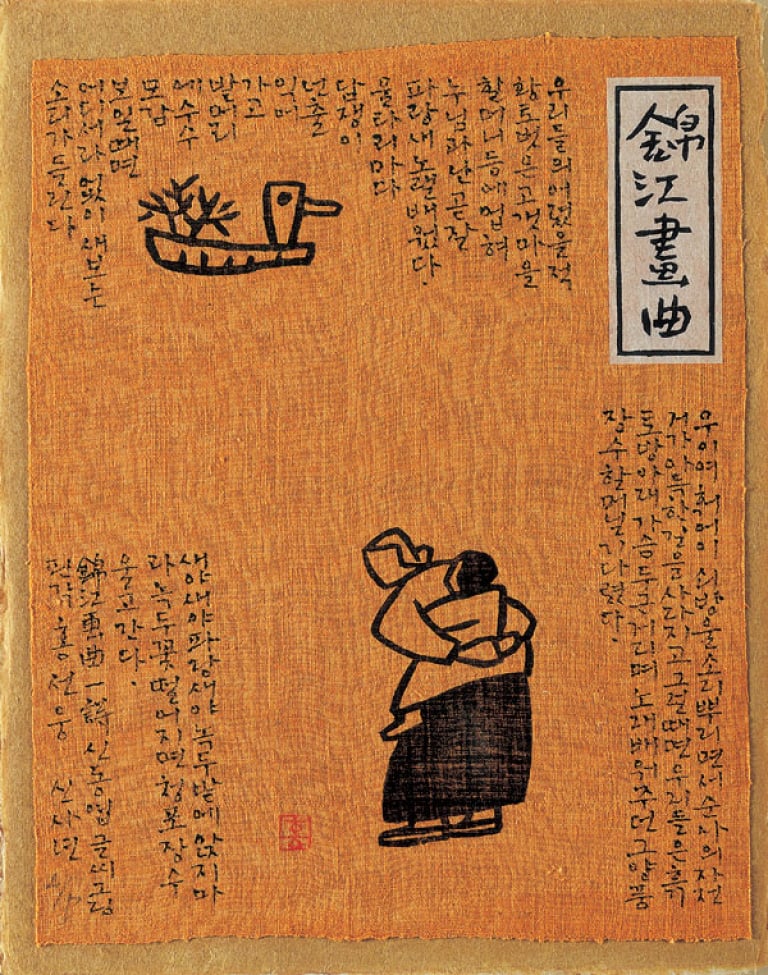 錦江畫曲
우리들의어렸을적
황토벗은고갯마을
할머니등에업혀
누님과난곧잘
파랑새노랠배웠다.
울타리마다
담쟁이
넌출
익어
가고
밭머리
에수수
모감
보일때면
어디서라없이새보는
소리가들린다
우이여 훠어이 쇠방울소리뿌리면서순사의자전
거가아득한길을사라지고그럴때면우리들은흙
토방아래가슴두근거리며노래배워주던그양품
장수할머닐기다렸다.
새야새야파랑새야녹두밭에앉지마
라녹두꽃떨어지면청포장수
울고간다.
錦江畫曲一 詩신동엽글씨그림
판각홍선웅 신사년